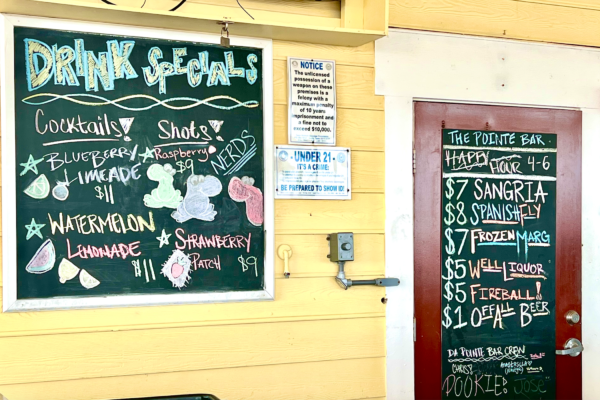 DRINK SPECIALS
Cocktails!
BLUEBERRY
LIMEADE
$11
WATERMELON
LEMONADE
$11
Shots!
Raspberry
$9
NERDS
STRAWBERRY
PATCH $9
NOTICE
The unlicensed
possession of a
weapon on these
premises is a
felony with a
maximum penalty
of 10 years
imprisonment and
a fine not to
exceed $10,000.
UNDER 21
IT'S A CRIME!
BE PREPARED TO SHOW ID!
THE POINTE BAR
HAPPY HOUR 4-6
$7 SANGRIA
$8 SPANISH FLY
$7 FROZEN MARG
$5 WELL LIQUOR
$5 FIREBALL!
$1 OFF ALL BEER
DA POINTE BAR CREW
POOKIE! JOSE